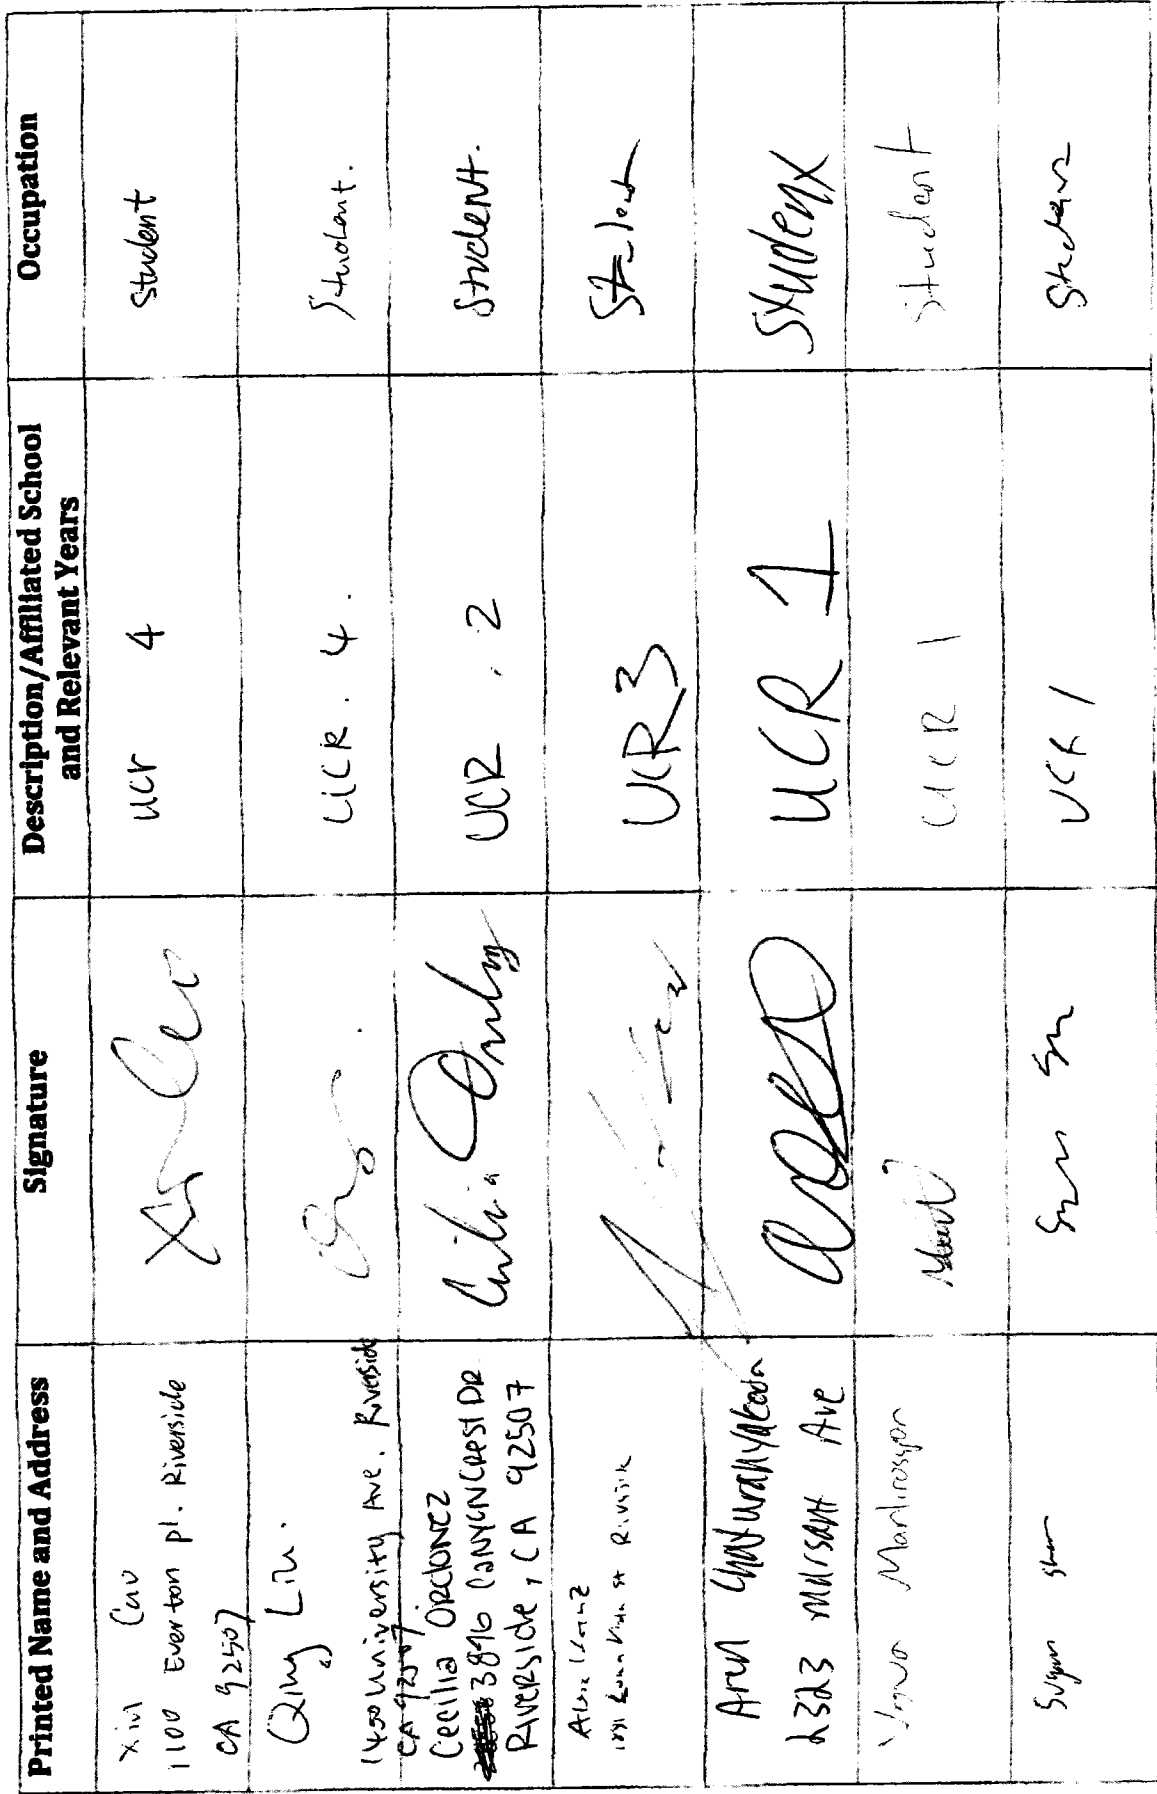 Printed Name and Address
Signature
Description/Affiliated School
and Relevant Years
Occupation
Xin Cao
1100 Everton pl. Riverside
CA 92507
ucr 4
Student
Qing Liu.
1450 University Ave. Riverside
CA 92507
UCR. 4.
Student.
Cecilia ORDONEZ
3896 CANYON CREST DR
RIVERSIDE, CA 92507
UCR. 2
Student.
UCR 3
Student
Aren
2323 Ave
UCR 1
Student
Martirosyan
UCR 1
student
UCR 1
Student